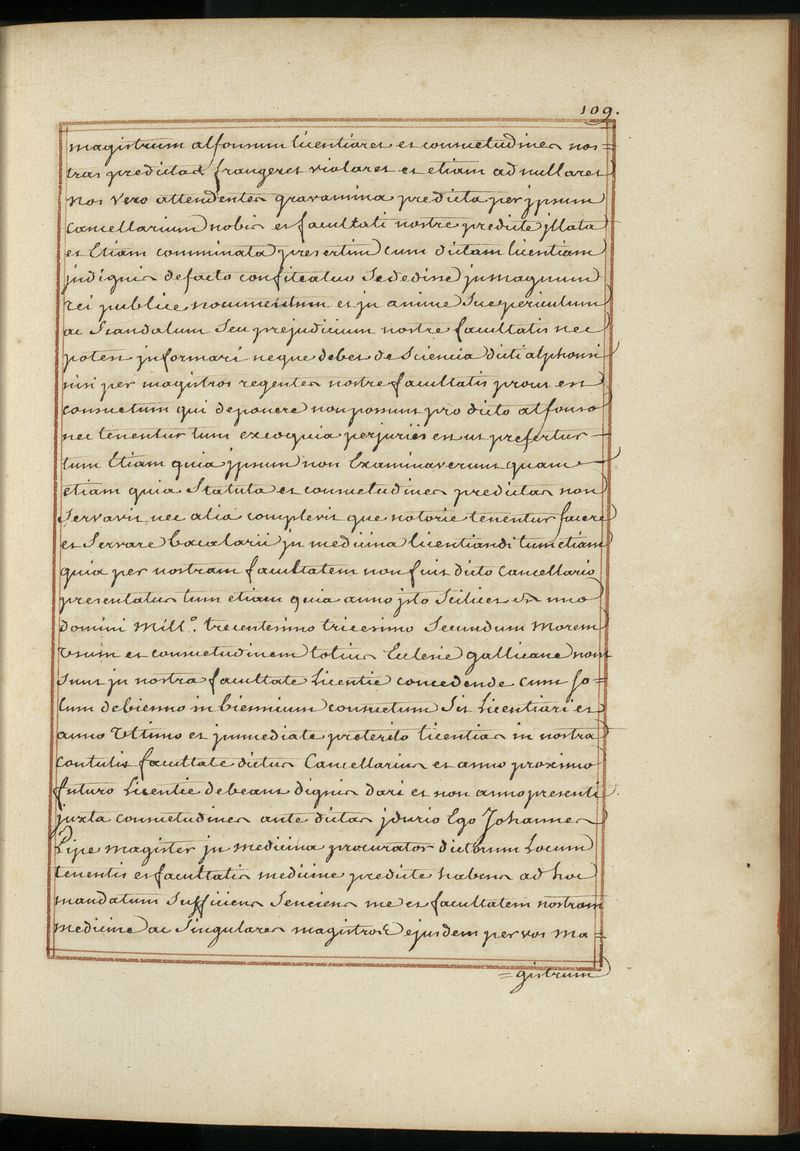 109.
magistrum alfonsum licentiaret et consuetudines nos=
tras predictas frangeret violaret et etiam adnullaret
nos vero attendentes gravamina predicta per jpsum
Cancellarium nobis et facultati nostre predicte jllata
et Etiam comminata presertim cum dictam licentiam
jndignis de facto confiteatur Se dedisse jn magnum
rei publice nocumentum et jn anime Sue periculum
ac Scandalum Seu prejudicium nostre facultatis nec
potest jnformari neque debet de Sciencia dicti alphonsi
nisi per magistros regentes nostre facultatis prout est
consuetum qui deponere non possunt pro dicto alfonso
nec tenentur tum ex eo quia perjurus est ut prefertur
tum Etiam quia jpsum non Examinaverunt quam
etiam quia Statuta et consuetudines predictas non
Servavit nec alia complevit que notorie tenentur facere
et Servare bacalarii jn medicina licentiandi tum etiam
quia per nostram facultatem non fuit dicto Cancellario
presentatus tum etiam quia anno jsto Scilicet
domini Mill.º trecentesimo tricesimo Secundum Morem
Vsum et consuetudinem totius Eclesie gallicane non
Sunt jn nostra facultate Licentie concedende cum So=
lum de biennio in biennium consuetum Sit Licentiari et
anno Vltimo et jmmediate preterito licentias in nostra
contulit facultate dictus Cancellarius et anno proximo
futuro Licentie debeant dignis dari et non anno presenti
juxta consuetudines ante dictas jdcirco Ego Johannes
Pipe magister jn medicina procurator dictorum Locum
tenentis et facultatis medicine predicte habens ad hoc
mandatum Sufficiens Senciens me et facultatem nostram
medicine ac Singulares magistros ejusdem per vos Ma=
=gistrum